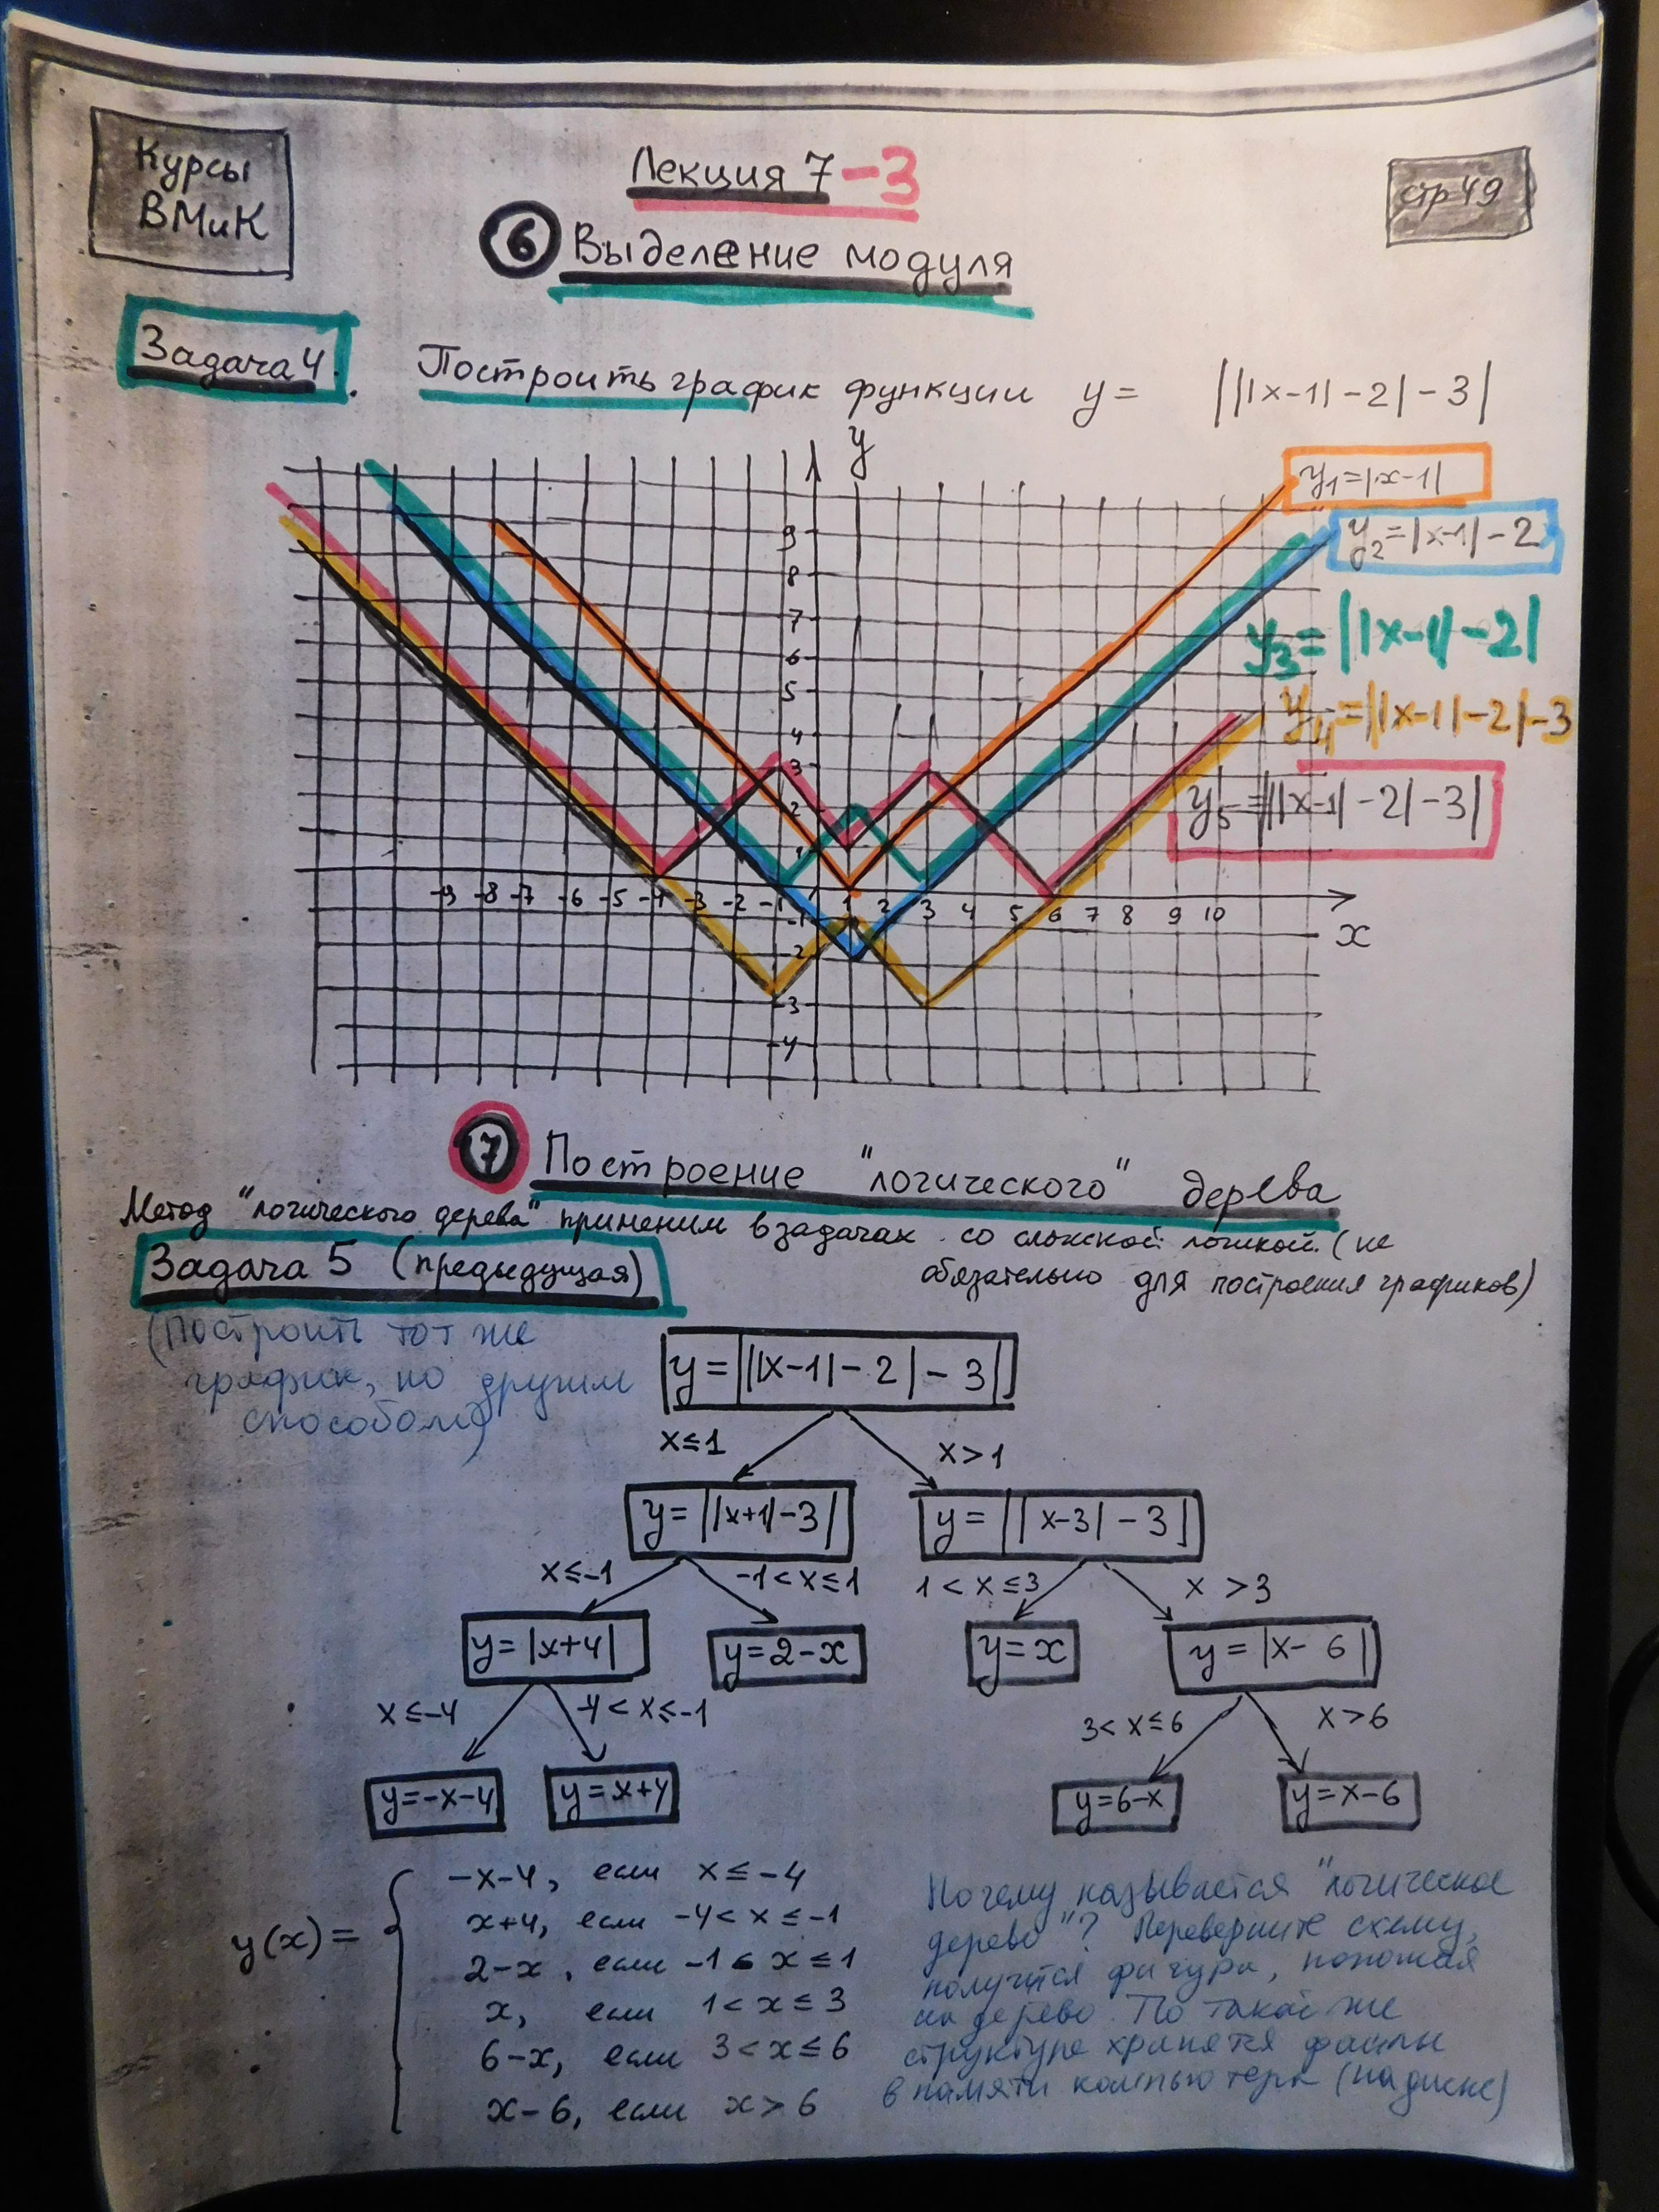 Курсы
ВМиК
Лекция 7-3
стр 49
6 Выделение модуля
Задача 4. Построить график функции y = |||x-1|-2|-3|
y
y₁=|x-1|
y₂=|x-1|-2
y₃=||x-1|-2|
y₄=||x-1|-2|-3
y₅=|||x-1|-2|-3|
9
8
7
6
5
4
3
2
1
-9 -8 -7 -6 -5 -4 -3 -2 -1 1 2 3 4 5 6 7 8 9 10
x
-1
-2
-3
-4
7 Построение "логического" дерева
Метод "логического дерева" применим в задачах со сложной логикой (не
обязательно для построения графиков)
Задача 5 (предыдущая)
(Построить тот же
график, но другим
способом)
y=|||x-1|-2|-3|
x≤1 x>1
y=||x+1|-3| y=||x-3|-3|
x≤-1 -1<x≤1 1<x≤3 x>3
y=|x+4| y=2-x y=x y=|x-6|
x≤-4 -4<x≤-1 3<x≤6 x>6
y=-x-4 y=x+4 y=6-x y=x-6
y(x)=
-x-4, если x≤-4
x+4, если -4<x≤-1
2-x, если -1<x≤1
x, если 1<x≤3
6-x, если 3<x≤6
x-6, если x>6
Почему называется "логическое
дерево"? Переверните схему,
получится фигура, похожая
на дерево. По такой же
структуре хранятся файлы
в памяти компьютера (на диске)